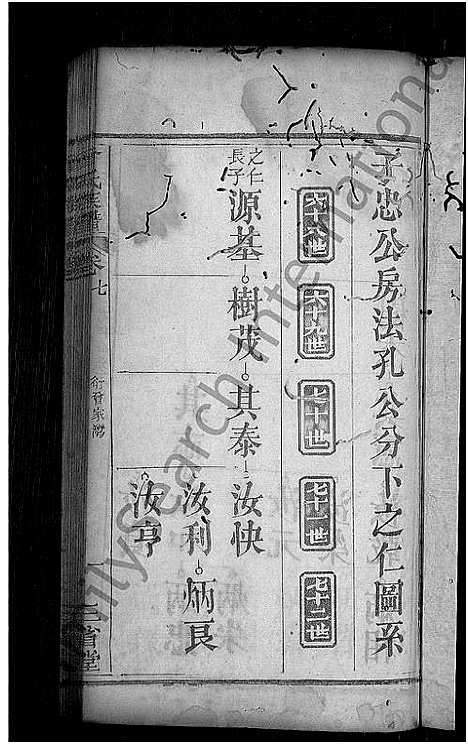 子忠公房法孔公分下之仁圖系
六十八世
六十九世
七十世
七十一世
七十二世
之仁長子
源基
樹茂
其泰
汝快
汝利
炳良
汝亨
氏宗譜
卷
七
三省堂
FamilySearch International